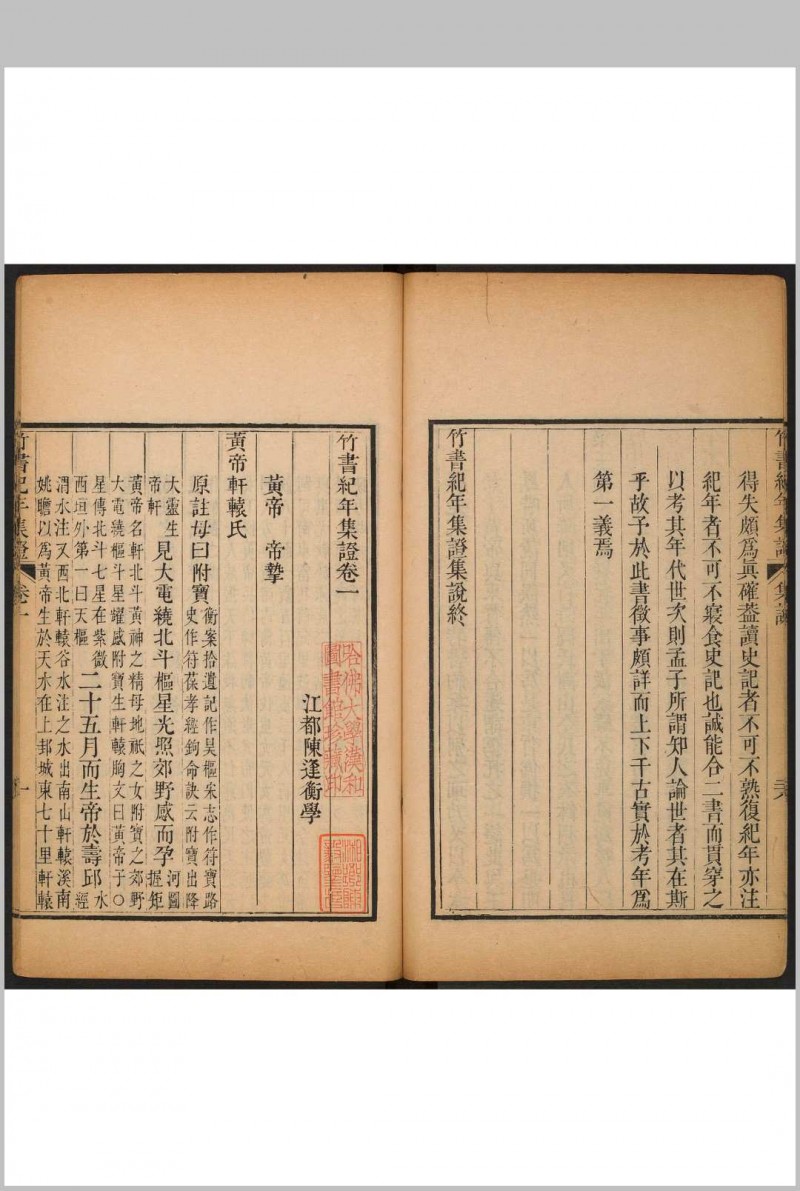 得失頗爲眞確葢讀史記者不可不熟復紀年亦注
紀年者不可不寢食史記也誠能合二書而貫穿之
以考其年代世次則孟子所謂知人論世者其在斯
乎故予於此書徵事頗詳而上下千古實於考年爲
第一義焉
竹書紀年集證集說終
竹書紀年集證卷一
江都陳逢衡學
黃帝　帝摯
黃帝軒轅氏
原註母曰附寶
衡案拾遺記作昊樞宋志作符寶路
史作符葆孝經鉤命訣云附寶出降
大靈生
帝軒
見大電繞北斗樞星光照郊野感而孕
河圖
握矩
黃帝名軒北斗黃神之精母地祇之女附寶之郊野
大電繞樞斗星耀感附寶生軒轅胸文曰黃帝于○
星傳北斗七星在紫微
西垣外第一曰天樞
二十五月而生帝於壽邱
水
經
渭水注又西北軒轅谷水注之水出南山軒轅溪南
姚瞻以爲黃帝生於天水在上邽城東七十里軒轅
竹書紀年集證
卷一
一
哈佛大學漢和
圖書館珍藏印